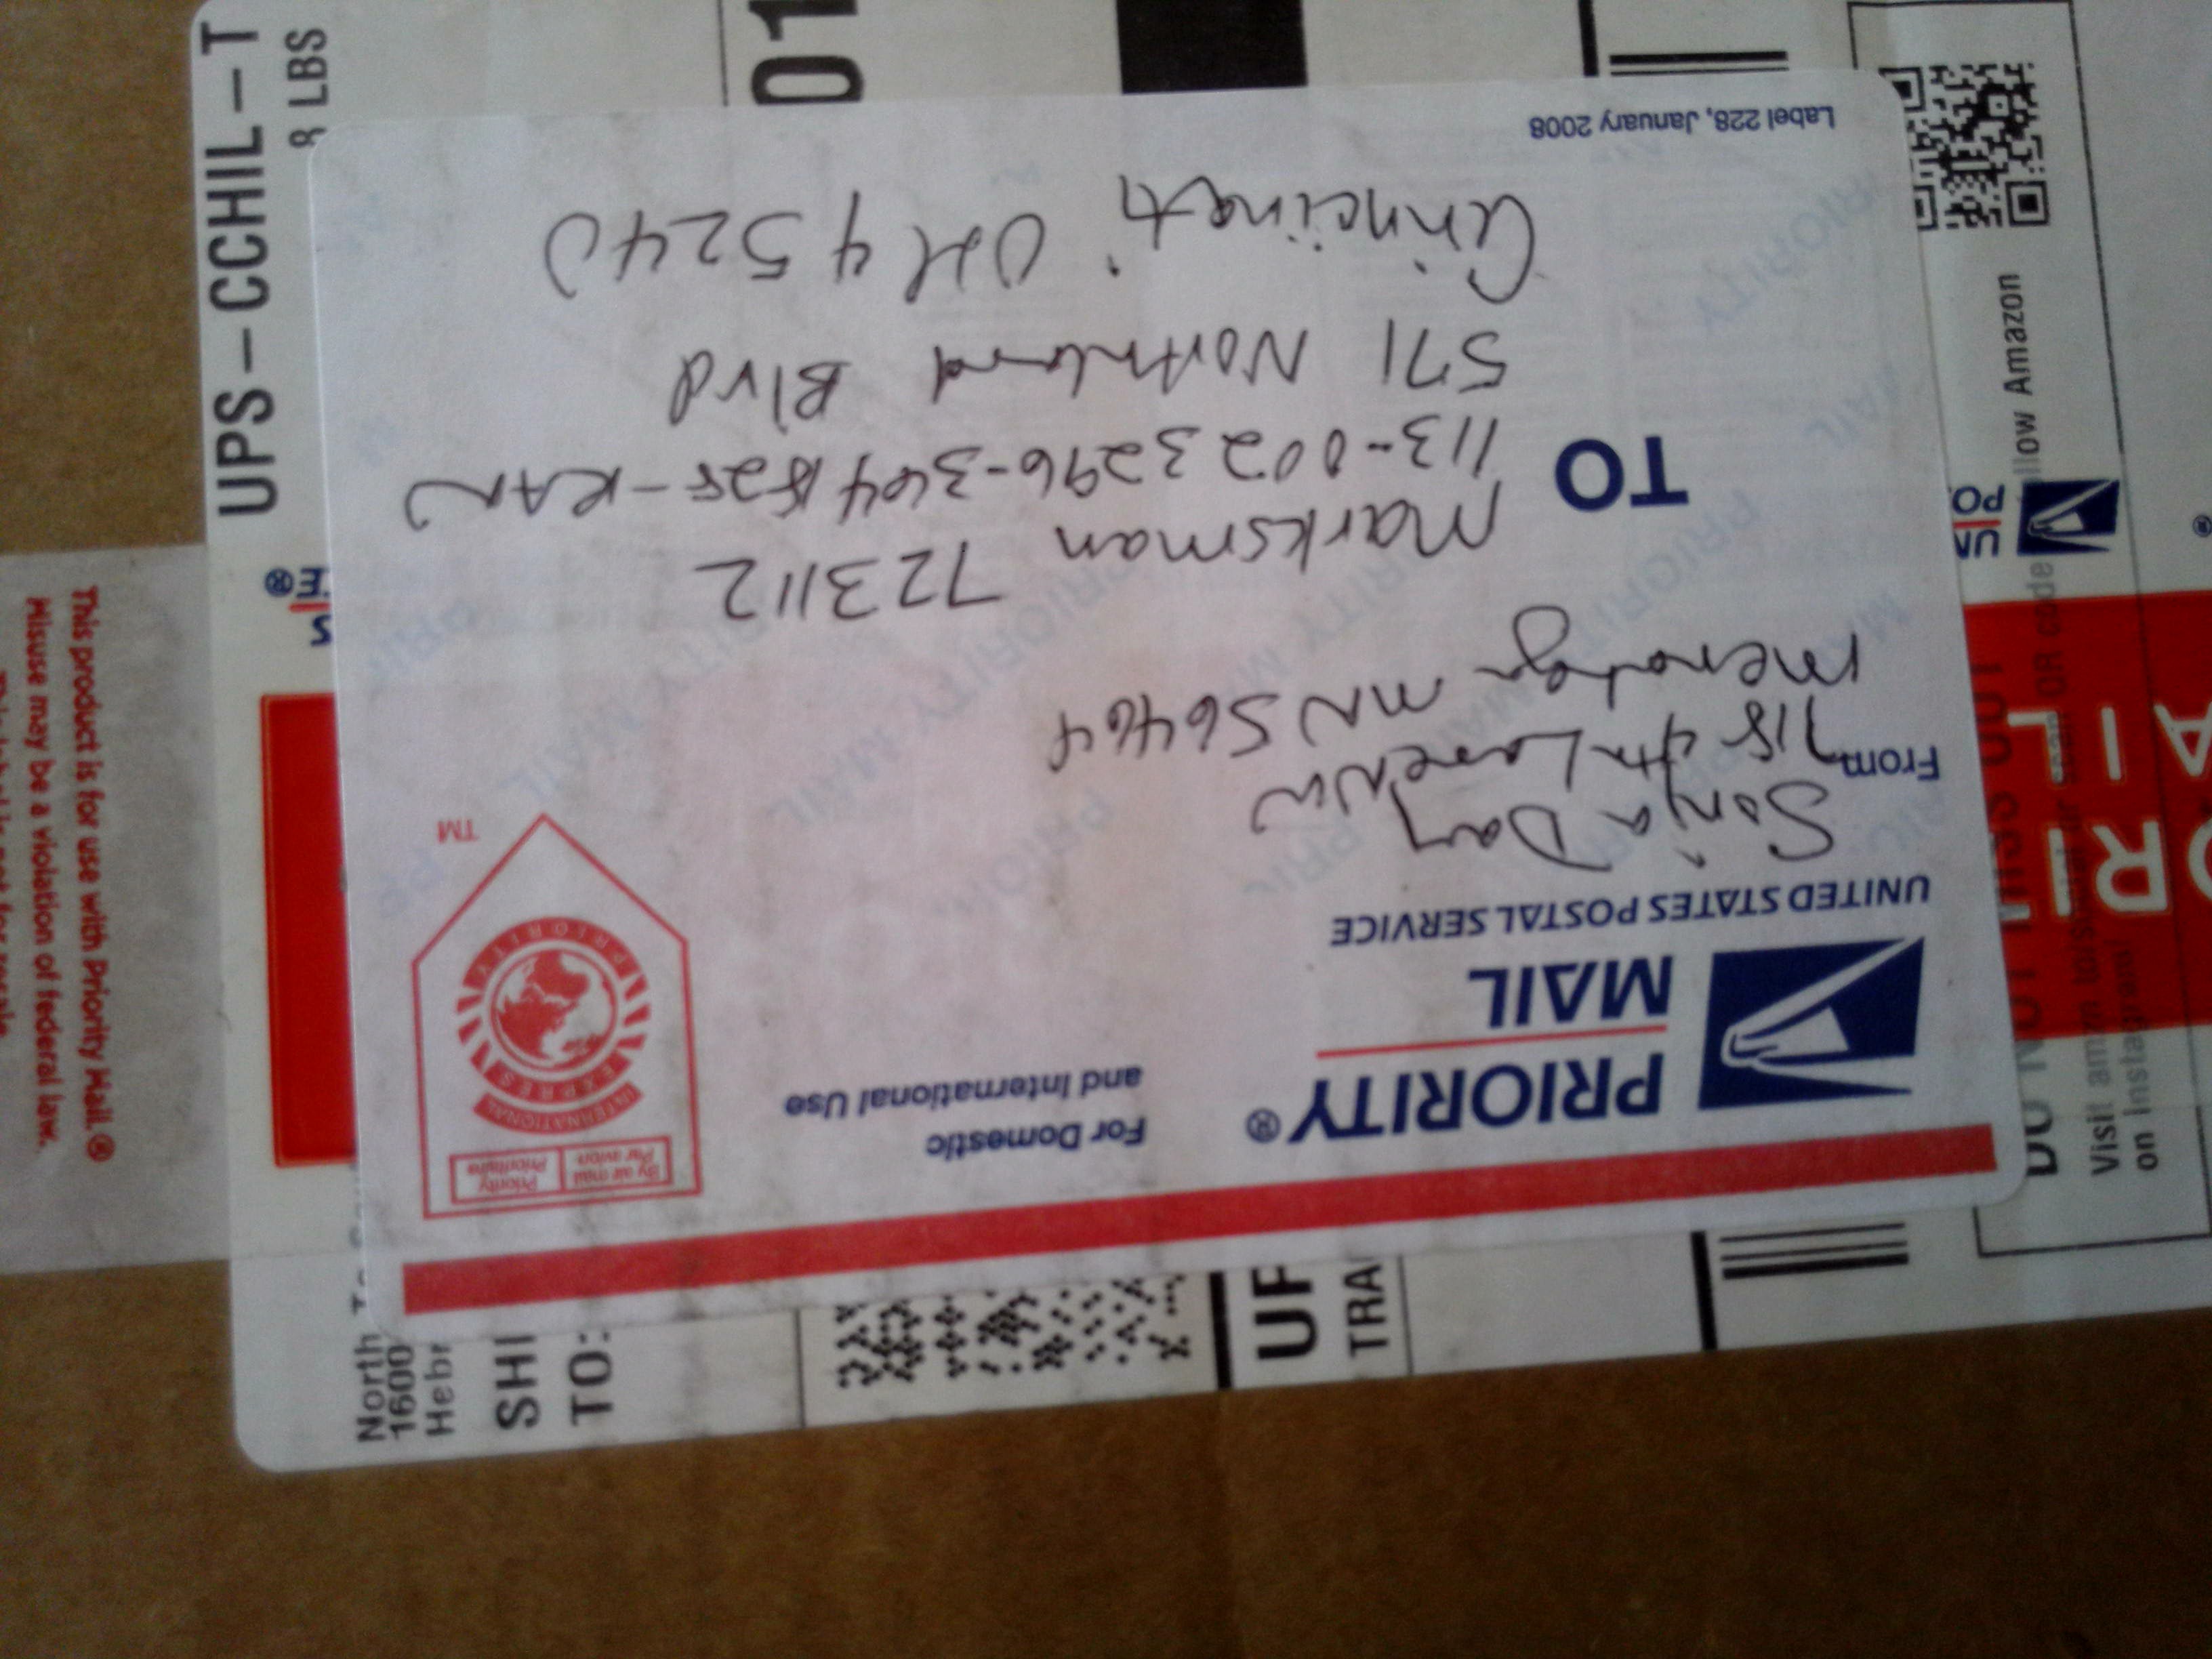 PRIORITY®
MAIL
UNITED STATES POSTAL SERVICE
For Domestic
and International Use
By air mail
Par avion
Priority
Prioritaire
INTERNATIONAL
EXPRES
PRIORITY
TM
From
Sonja Day
718 4th Lane NW
Menahga MN 56464
TO
Marksman 723112
571 Northland Blvd
Cincinnati OH 45240
Label 228, January 2008
UPS-CCHIL-T
8 LBS
01
North
1600
Hebr
SHI
TO:
UP
TRA
This product is for use with Priority Mail.®
Misuse may be a violation of federal law.
Visit
on Instagram
llow Amazon